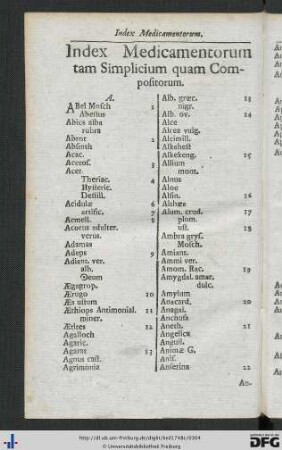 Index Medicamentorum.
Index Medicamentorum
tam Simplicium quam Com-
positorum.
A.
ABel Mosch 1
Abellus
Abies alba
rubra
Abrot 2
Absinth
Acac.
Acetos. 3
Acet
Theriac. 4
Hysteric.
Destill.
Acidulæ 6
artific. 7
Acmell. 8
Acorus adulter.
verus.
Adamas
Adeps 9
Adiant. ver.
alb.
Ægagrop.
Ærugo 10
Æs ustum
Æthiops Antimonial. 11
miner.
Ætites 12
Agalloch
Agaric.
Agarat 13
Agnus cast.
Agrimonia
Alb. græc. 13
nigr.
Alb. ov. 14
Alce
Alcea vulg.
Alcimill.
Alkahest
Alkekeng. 15
Allium
mont.
Alnus
Aloe
Alsin. 16
Althæa
Alum. crud. 17
plum.
ust. 18
Ambra grys.
Mosch.
Amiant.
Ammi ver.
Amom. Rac. 19
Amygdal. amar.
dulc.
Amylum
Anacard. 20
Anagal.
Anchusa
Aneth. 21
Angelica
Anguill.
Animæ G.
Anis.
Anserina 22
An-
http://dl.ub.uni-freiburg.de/diglit/hell1748c/0304
© Universitätsbibliothek Freiburg
gefördert durch die
DFG